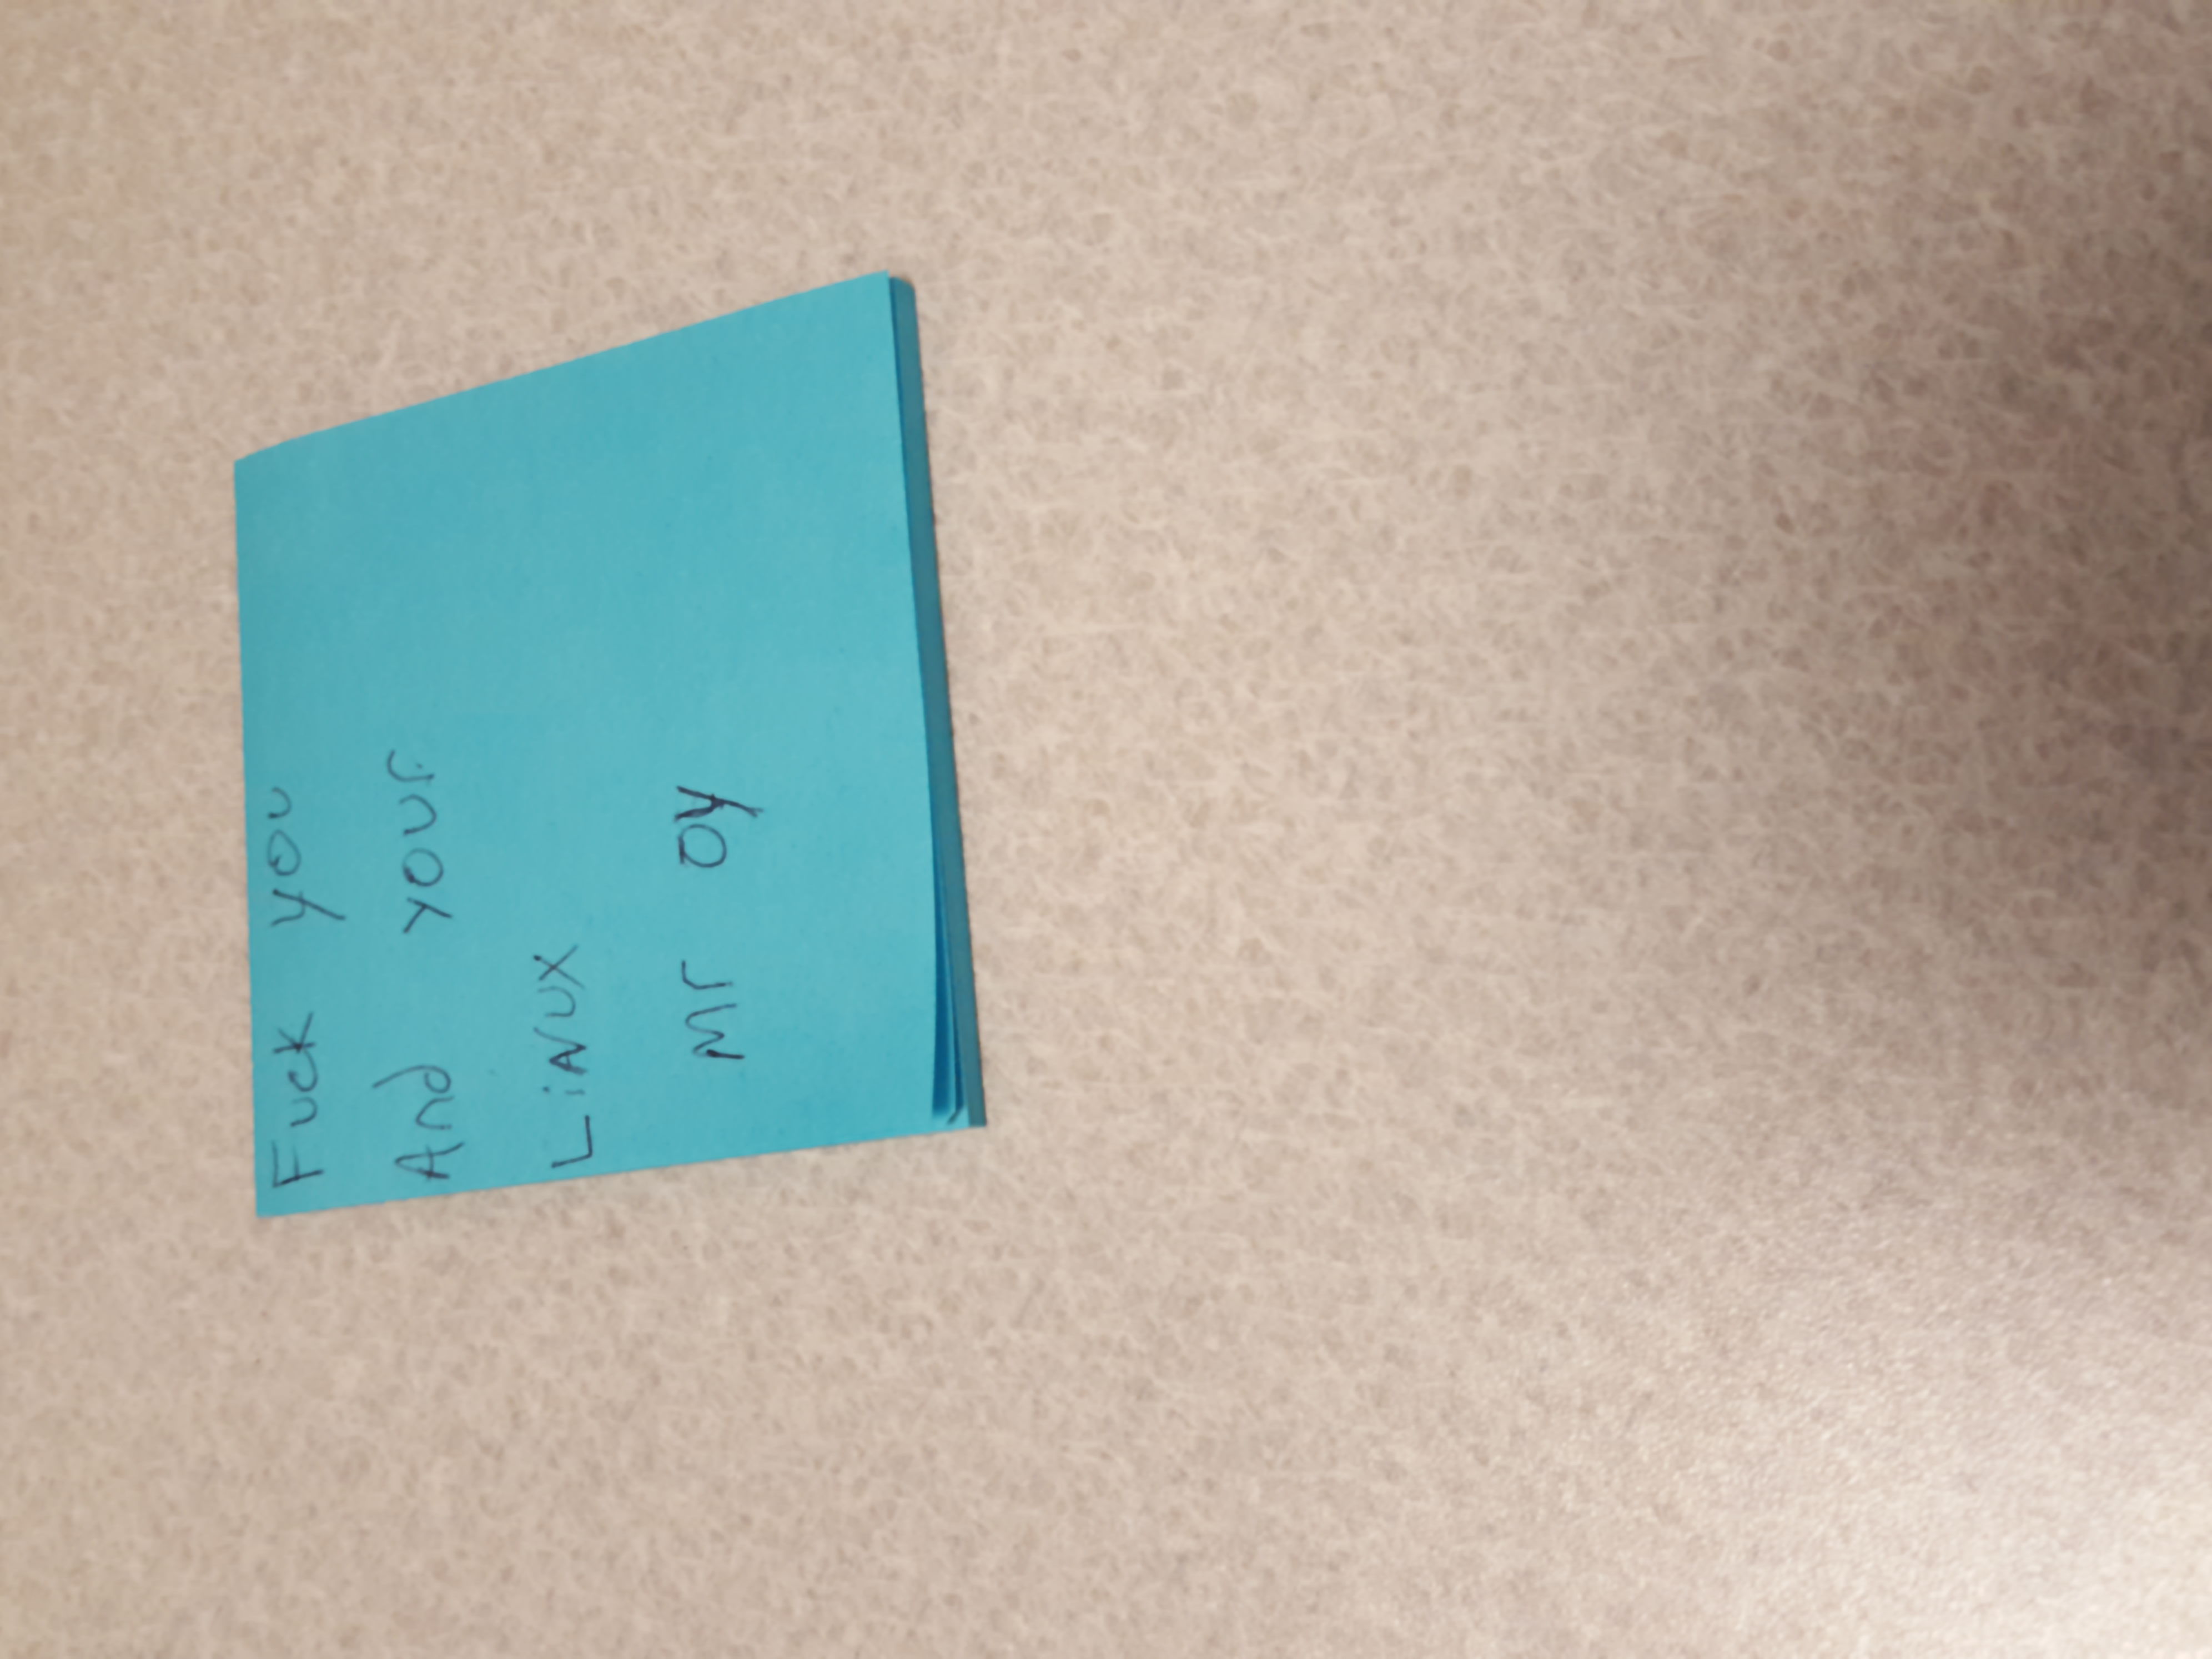 Fuck you
And your
LiNUX
Mr oy